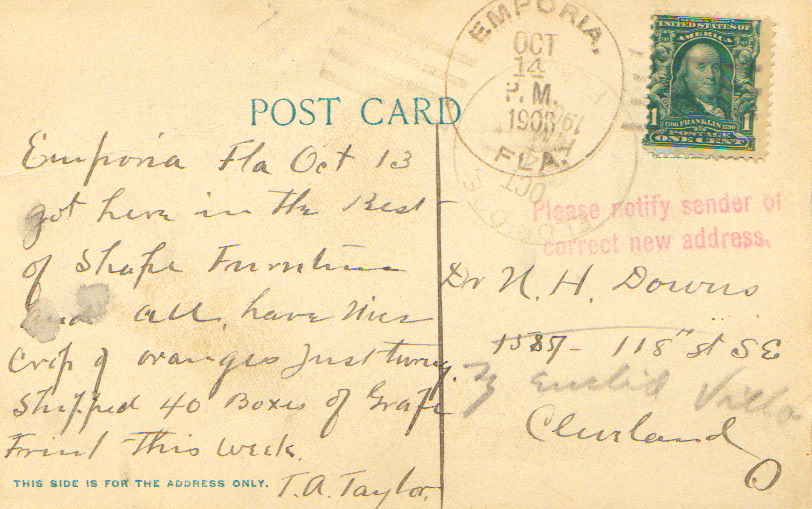 POST CARD
EMPORIA,
OCT
14
P.M.
1908
FLA.
UNITED STATES OF
AMERICA
1 FRANKLIN 1
POSTAGE
ONE CENT
Please notify sender of
correct new address.
Emporia Fla Oct 13
got here in the Best
of Shape Furniture
and all, have nice
crop of oranges Just turng.
Shipped 40 Boxes of Grape
Friut this week.
T.A. Taylor.
Dr N. H. Downs
118th St SE
Euclid Villa
Cleveland
O
THIS SIDE IS FOR THE ADDRESS ONLY.